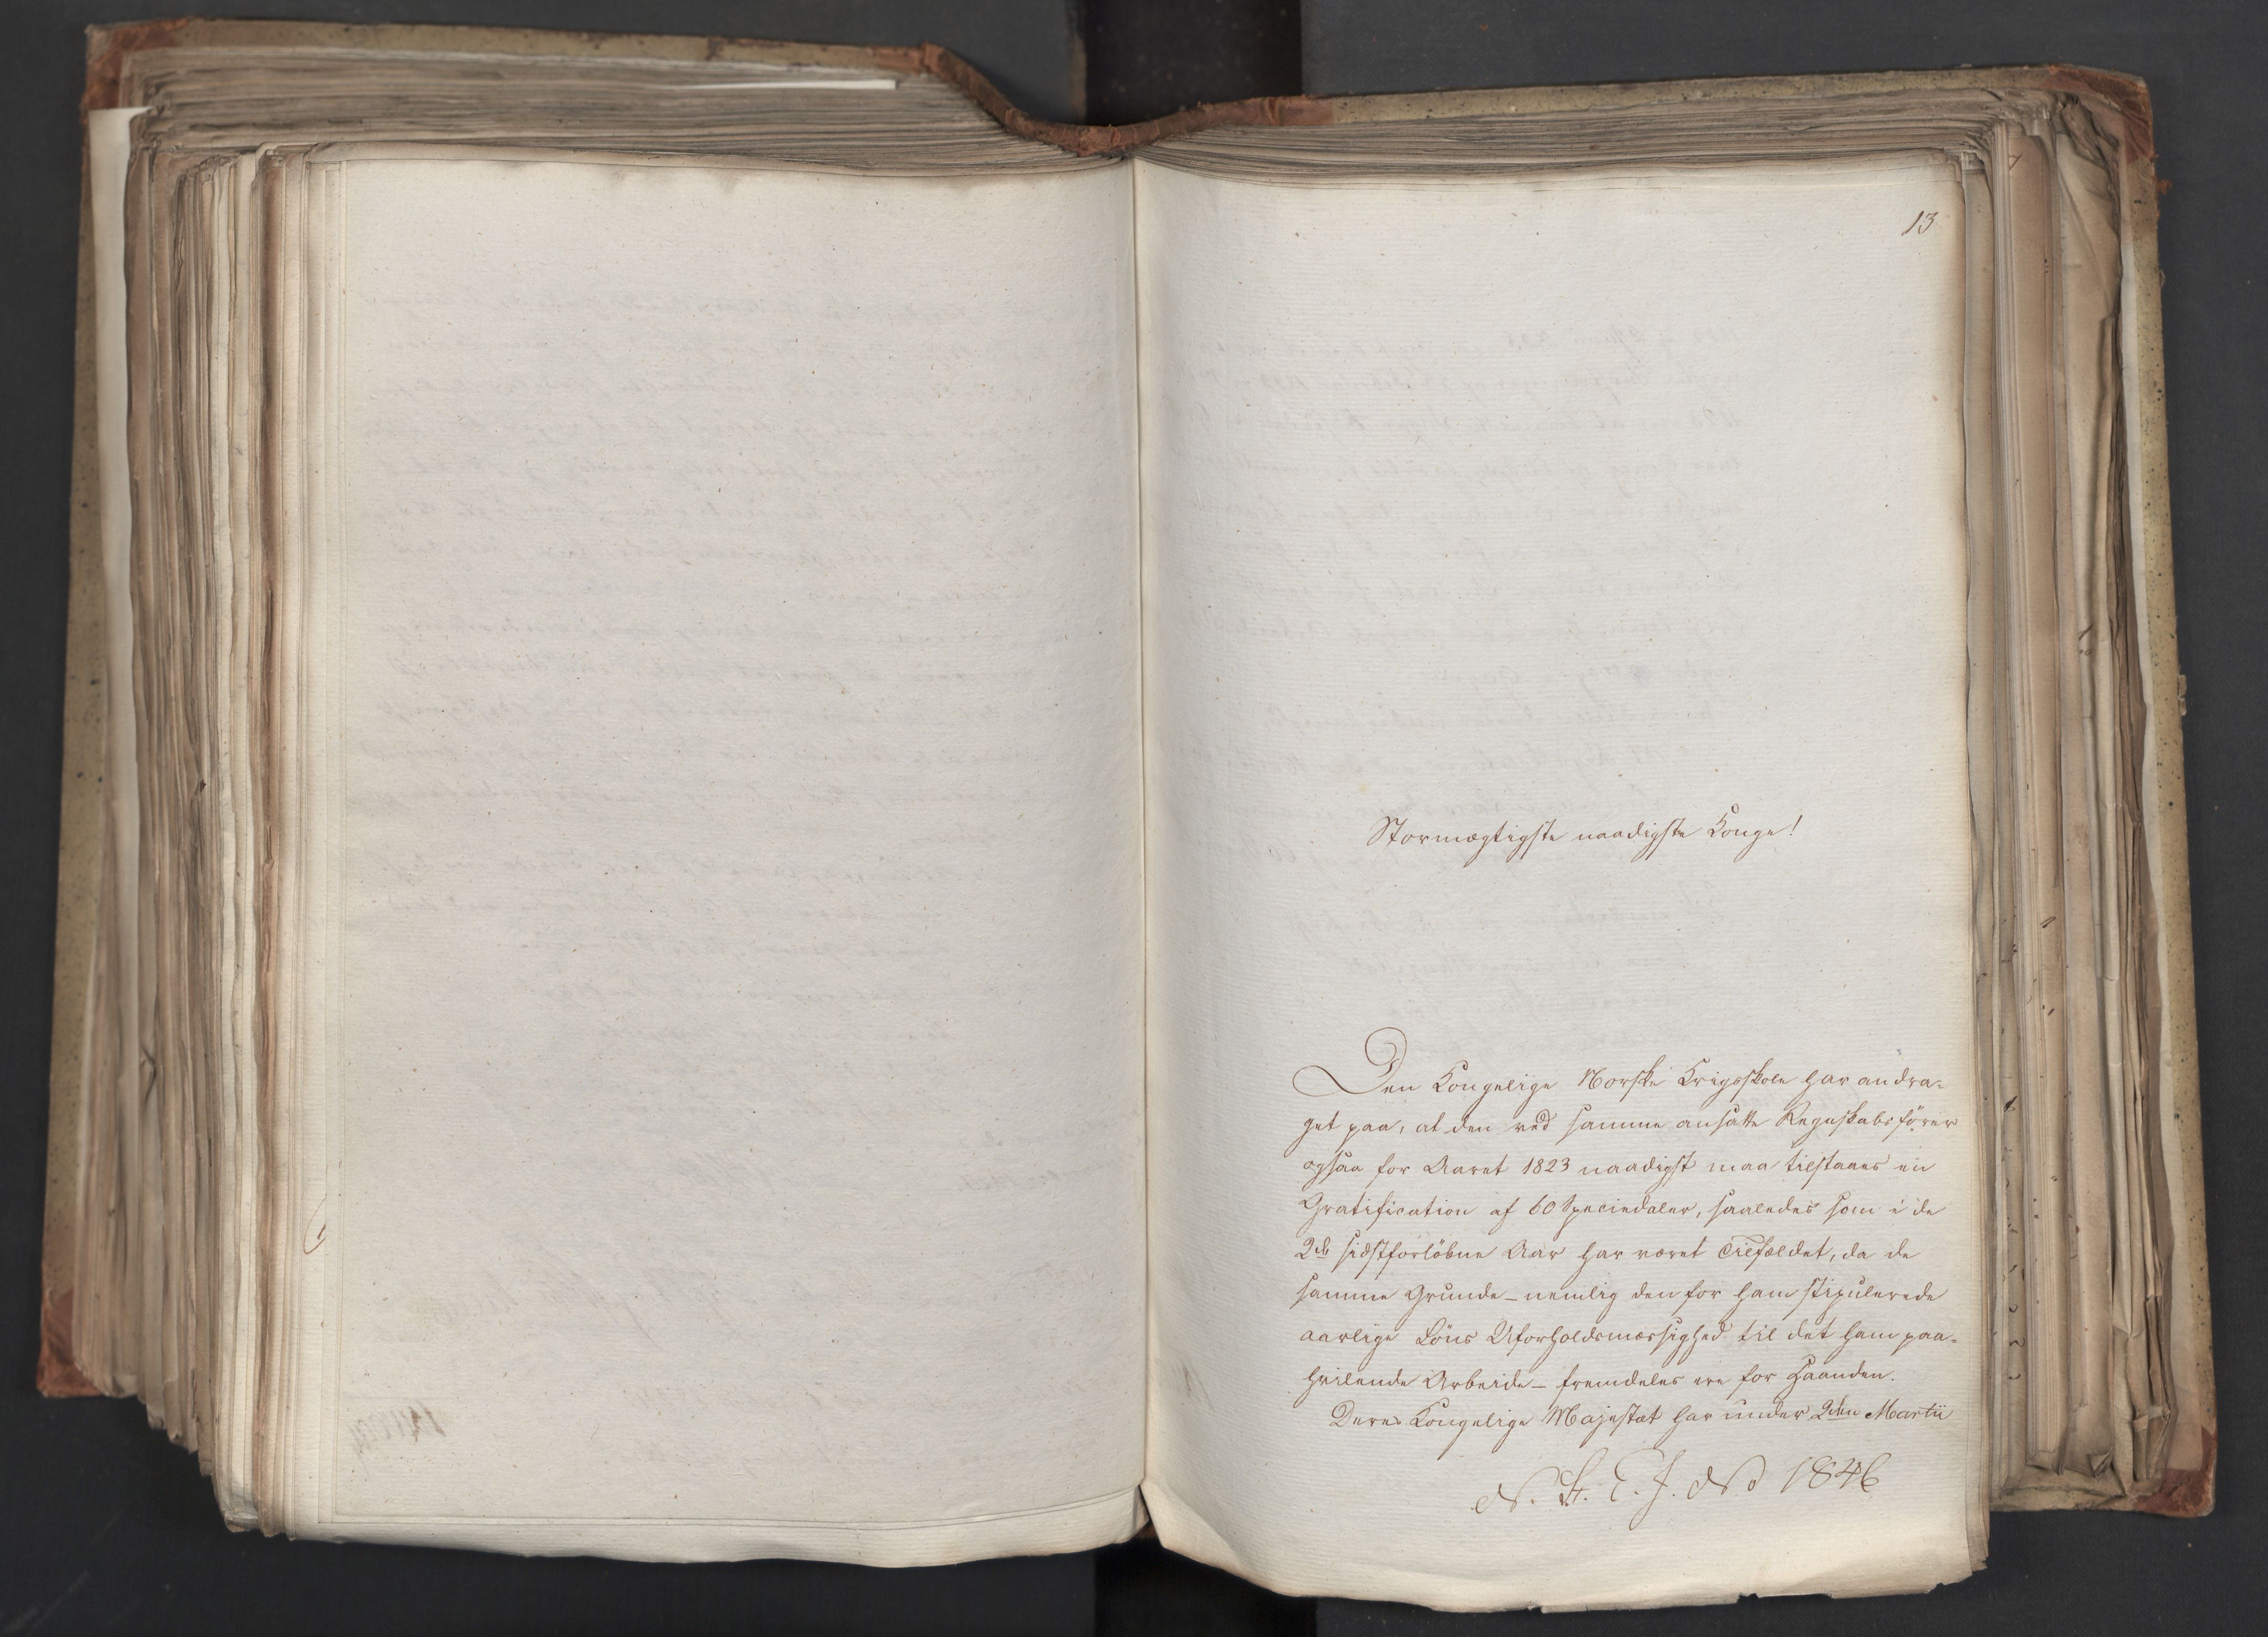 13
Stormægtigste naadigste Konge!
Den Kongelige Norske Krigsskole har andra-
get paa, at den ved samme ansatte Regnskabsfører
ogsaa for Aaret 1823 naadigst maa tilstaaes en
Gratification af 60 Speciedaler, saaledes som i de
2de sidstforløbne Aar har været Tilfældet, da de
samme Grunde – nemlig den for ham stipulerede
aarlige Løns Uforholdsmæssighed til det ham paa-
hvilende Arbeide – fremdeles ere for Haanden.
Deres Kongelige Majestæt har under 2den Martii
N. St. E. J. No 1846